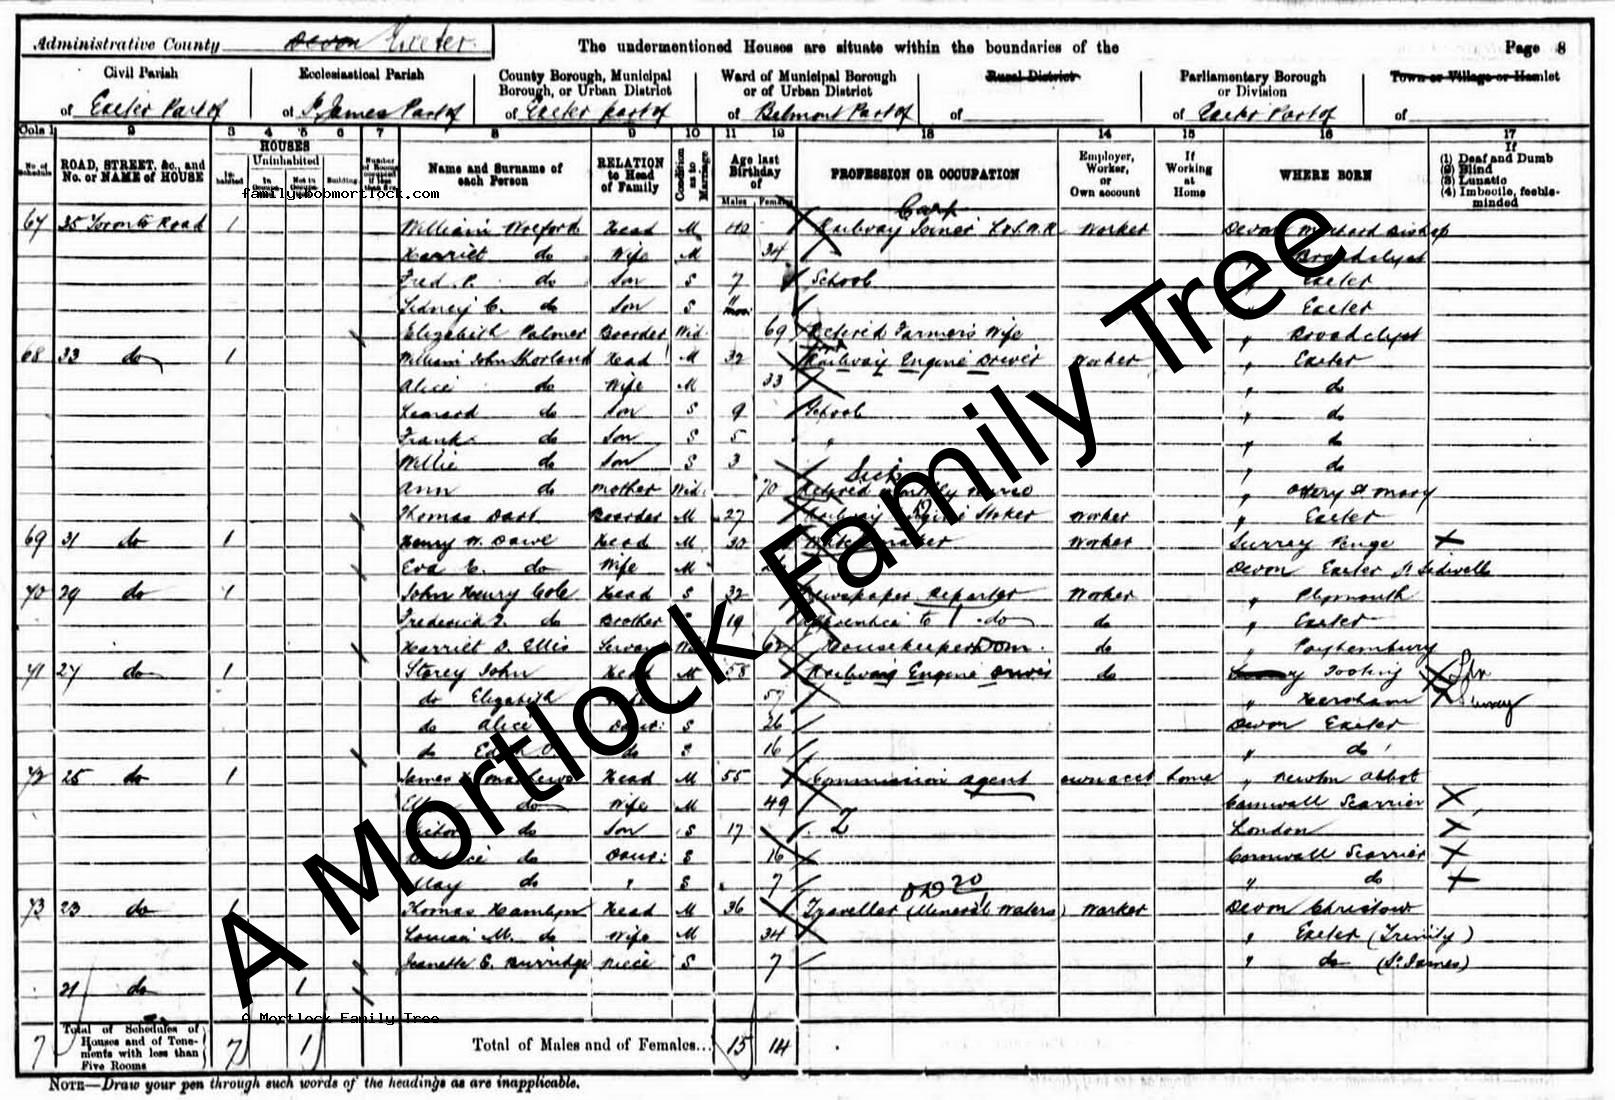 Administrative County Devon Exeter
The undermentioned Houses are situate within the boundaries of the
Page 8
Civil Parish of Exeter Part of
Ecclesiastical Parish of St James Part of
County Borough, Municipal Borough, or Urban District of Exeter part of
Ward of Municipal Borough or of Urban District of Belmont Part of
Rural District of
Parliamentary Borough or Division of Exeter Part of
Town or Village or Hamlet of
Cols 1 2 3 4 5 6 7 8 9 10 11 12 13 14 15 16 17
No. of Schedule
ROAD, STREET, &c., and No. or NAME of HOUSE
HOUSES
Inhabited
Uninhabited
In Occupation
Not in Occupation
Building
Name and Surname of each Person
RELATION to Head of Family
Condition as to Marriage
Age last Birthday of
Males Females
PROFESSION OR OCCUPATION
Employer, Worker, or Own account
If Working at Home
WHERE BORN
If
(1) Deaf and Dumb
(2) Blind
(3) Lunatic
(4) Imbecile, feeble-minded
family.bobmortlock.com
67 35 Toronto Road 1 William Head M 40 Railway Joiner L.&S.W.R Worker Devon Morchard Bishop
Carp
Harriet do Wife M 34 " Broadclyst
Fred P. do Son S 7 School " Exeter
Sidney C. do Son S 11 mos " Exeter
Elizabeth Palmer Boarder Wid. 69 Retired Farmer's Wife " Broadclyst
68 33 do 1 William John Shorland Head M 32 Railway Engine Driver Worker " Exeter
Alice do Wife M 33 " do
Leonard do Son S 9 School " do
Frank do Son S 5 " " do
Willie do Son S 3 " do
Sick
Ann do Mother Wid. 70 Retired Monthly Nurse " Ottery St Mary
Thomas Dart Boarder M 27 Railway Engine Stoker Worker " Exeter
69 31 do 1 Henry W. Dawe Head M 30 Worker Surrey Penge
Eva E. do Wife M Devon Exeter St Sidwells
70 29 do 1 John Henry Cole Head S 32 Newspaper Reporter Worker " Plymouth
Frederick J. do Brother 19 Apprentice to do do " Exeter
Harriet D. Ellis Servant Wid 62 Housekeeper Dom. do " Payhembury
71 27 do 1 Storey John Head M 58 Railway Engine Driver do Tooting Ldn
do Elizabeth Wife 57 " Hersham Surrey
do Alice Daur: S 26 Devon Exeter
do Edith do S 16 " do
72 25 do 1 James Matthews Head M 55 Commission agent own acct home " Newton Abbot
do Wife M 49 Cornwall Scorrier
Victor do Son S 17 London
do Daur: S 16 Cornwall Scorrier
May do " S 7 " do
73 23 do 1 Thomas Hamlyn Head M 36 Traveller (Mineral Waters) Worker Devon Christow
Louisa M. do Wife M 34 " Exeter (Trinity)
Jeanette E. Burridge Niece S 7 " do (St James)
21 do 1
A Mortlock Family Tree
A Mortlock Family Tree
7 Total of Schedules of Houses and of Tenements with less than Five Rooms 7 1 Total of Males and of Females... 15 14
NOTE—Draw your pen through such words of the headings as are inapplicable.